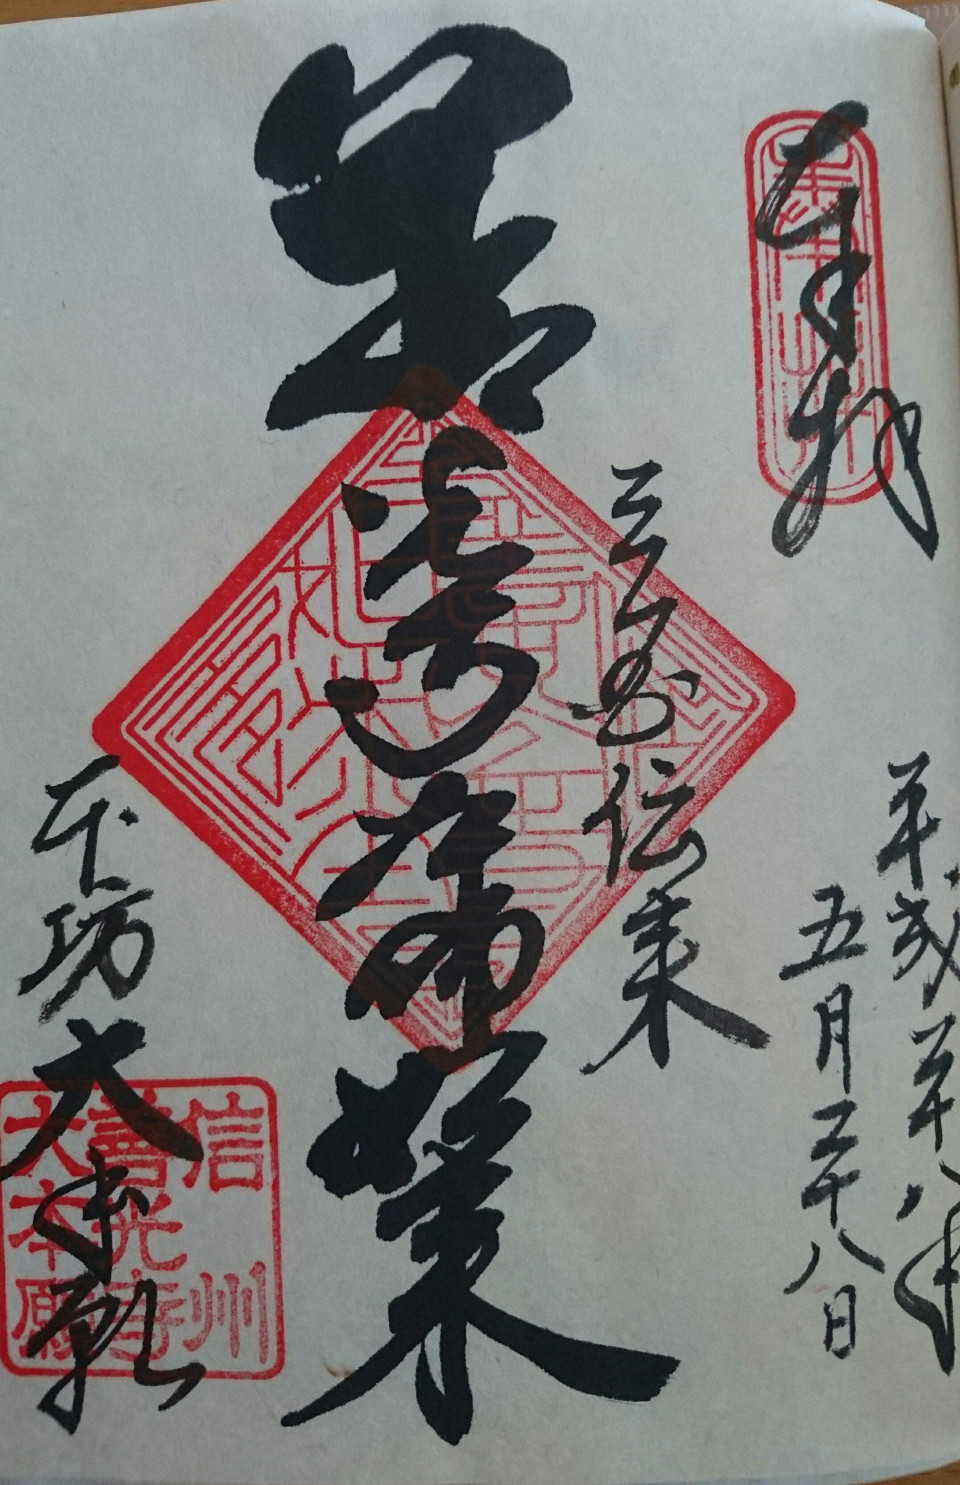 奉拝
平成二十八年
五月二十八日
三国伝来
善光寺如来
本坊 大本願
信州
善光寺
大本願